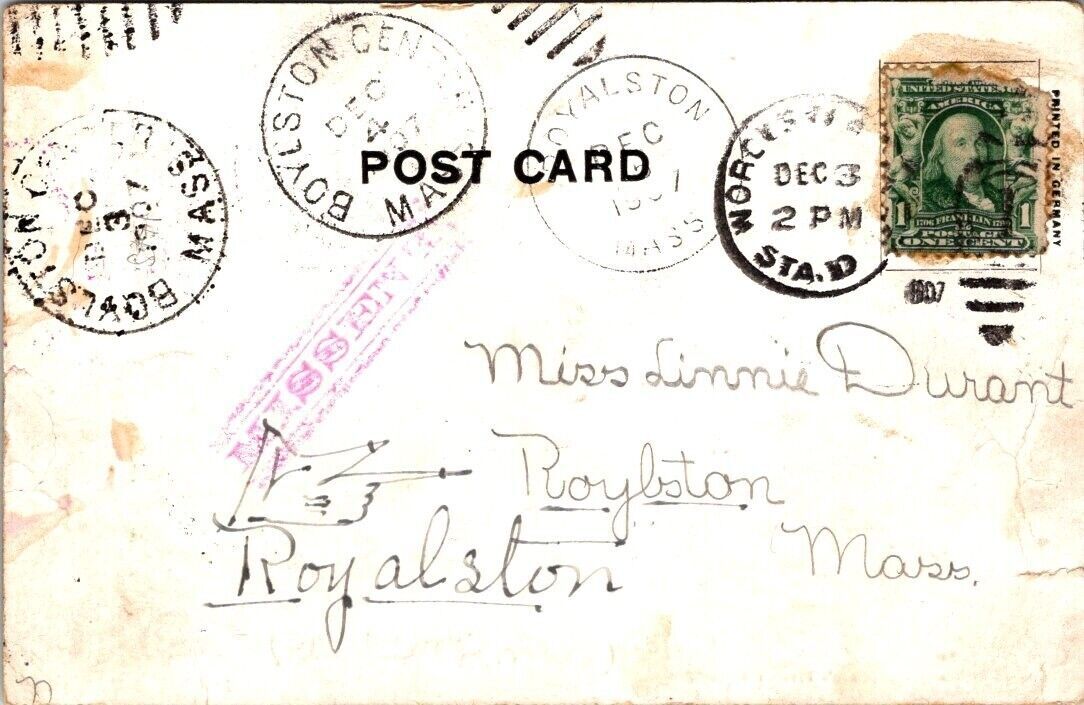 BOYLSTON CENTER MASS
DEC
4
07
ROYALSTON
DEC
MASS
WORCESTER
DEC 3
2 PM
STA. D
1907
UNITED STATES
AMERICA
1706 FRANKLIN 1790
POSTAGE
1 ONE CENT 1
PRINTED IN GERMANY
BOYLSTON CENTER MASS
DEC
3
07
POST CARD
MISSENT
Miss Linnie Durant
Roylston
Mass.
Royalston